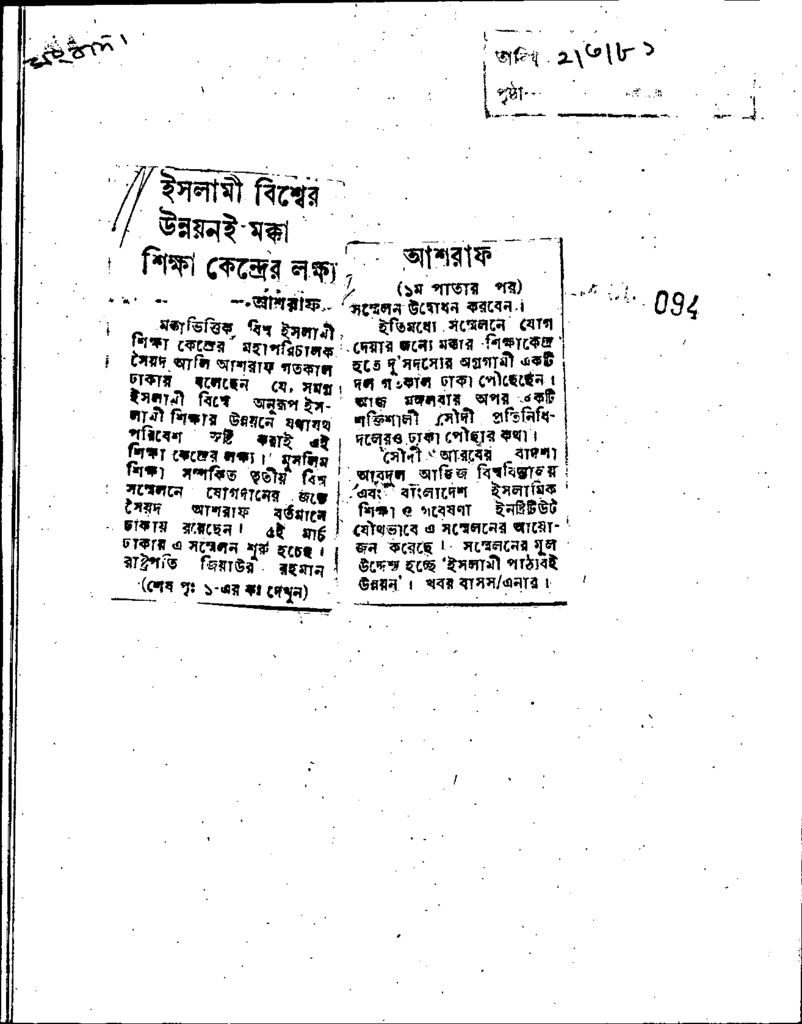 সংবাদ।
তারিখ 2/৩/৮১
পৃষ্ঠা
ইসলামী বিশ্বের
উন্নয়নই মক্কা
শিক্ষা কেন্দ্রের লক্ষ্য
—আশরাফ
মক্কাভিত্তিক বিশ্ব ইসলামী
শিক্ষা কেন্দ্রের মহাপরিচালক
সৈয়দ আলি আশরাফ গতকাল
ঢাকায় বলেছেন যে, সমগ্র
ইসলামী বিশ্বে অনুরূপ ইস-
লামী শিক্ষার উন্নয়নে যথাযথ
পরিবেশ সৃষ্টি করাই এই
শিক্ষা কেন্দ্রের লক্ষ্য। মুসলিম
শিক্ষা সম্পর্কিত তৃতীয় বিশ্ব
সম্মেলনে যোগদানের জন্যে
সৈয়দ আশরাফ বর্তমানে
ঢাকায় রয়েছেন। ৫ই মার্চ
ঢাকায় এ সম্মেলন শুরু হচ্ছে।
রাষ্ট্রপতি জিয়াউর রহমান
(শেষ পৃঃ ১-এর কঃ দেখুন)
আশরাফ
(১ম পাতার পর)
সম্মেলন উদ্বোধন করবেন।
ইতিমধ্যে সম্মেলনে যোগ
দেয়ার জন্যে মক্কার শিক্ষাকেন্দ্র
হতে দু'সদস্যের অগ্রগামী একটি
দল গতকাল ঢাকা পৌঁছেছেন।
আজ মঙ্গলবার অপর একটি
শক্তিশালী সৌদী প্রতিনিধি-
দলেরও ঢাকা পৌঁছার কথা।
সৌদী আরবের বাদশা
আবদুল আজিজ বিশ্ববিদ্যালয়
এবং বাংলাদেশ ইসলামিক
শিক্ষা ও গবেষণা ইনষ্টিটিউট
যৌথভাবে এ সম্মেলনের আয়ো-
জন করেছে। সম্মেলনের মূল
উদ্দেশ্য হচ্ছে 'ইসলামী পাঠ্যবই
উন্নয়ন'। খবর বাসস/এনার।
094